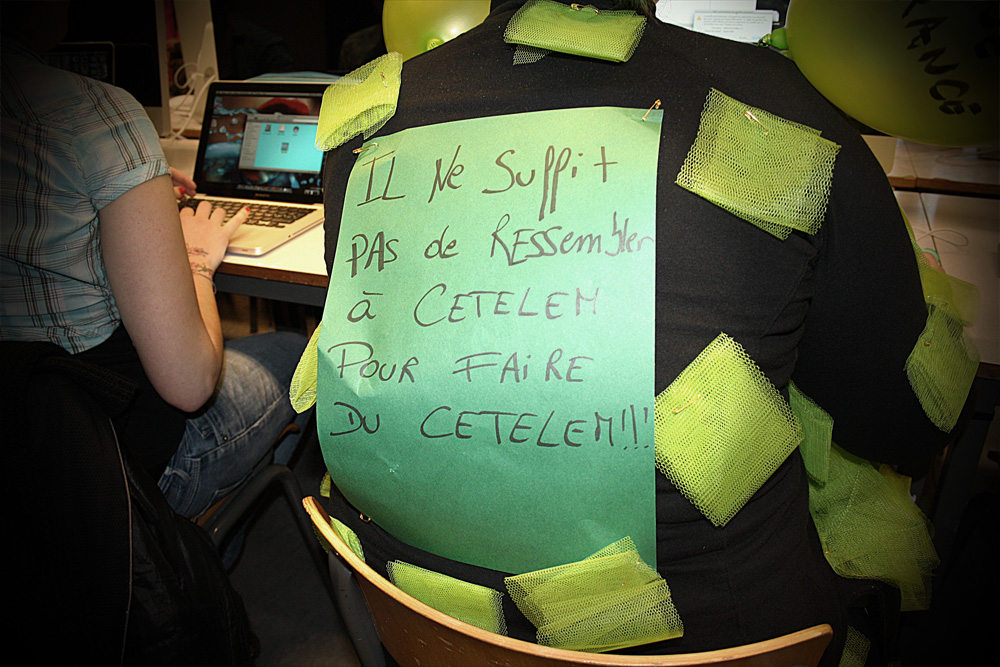 IL Ne Suffit
PAS de RESSembler
à CETELEM
POUR FAiRE
DU CETELEM!!!